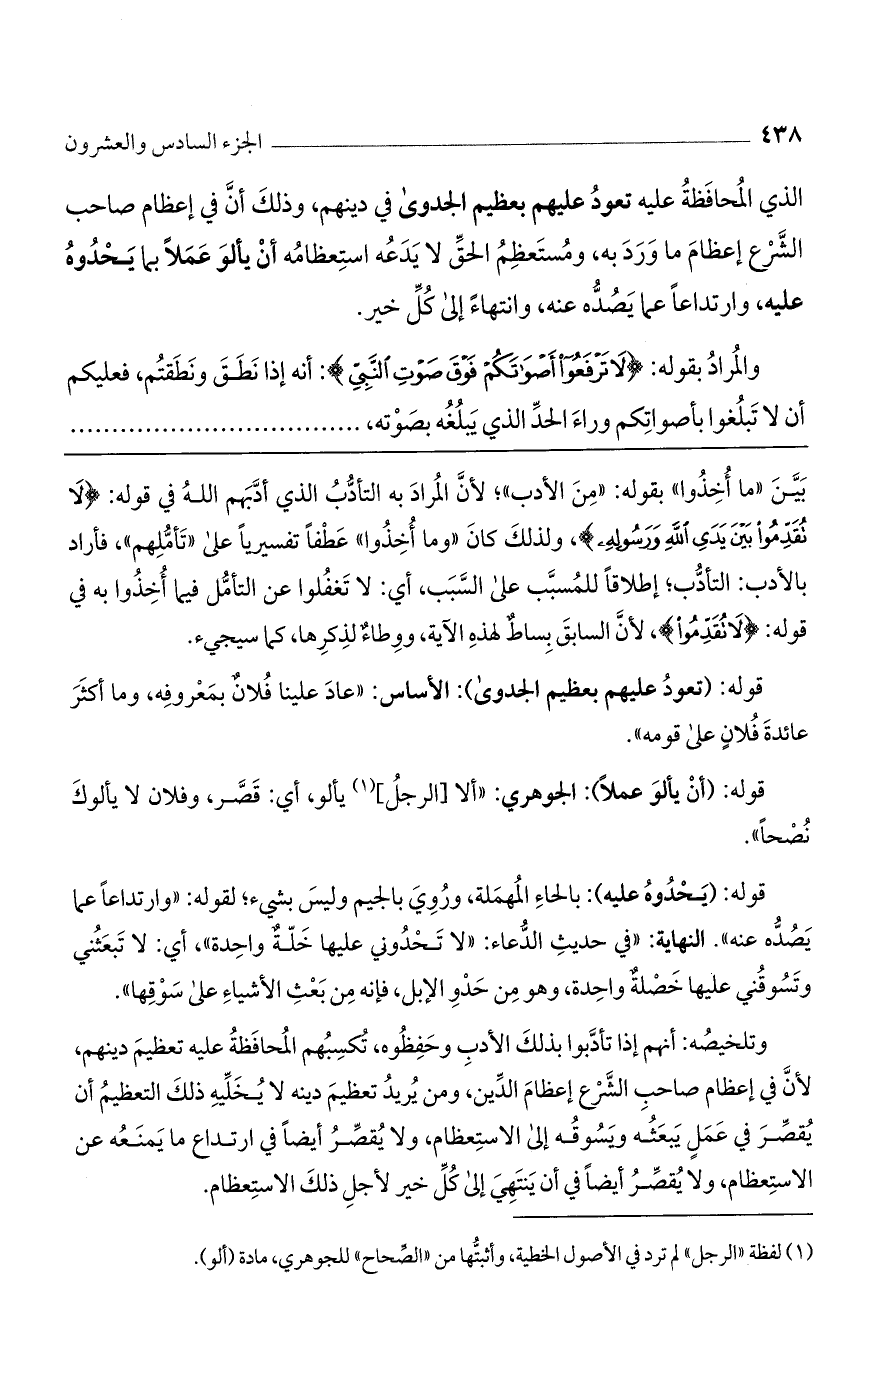 ٤٣٨ ــــــــــــــــــــــــــــــــ الجزء السادس والعشرون
الذي المُحافَظةُ عليه تعودُ عليهم بعظيم الجدوىٰ في دينهم، وذلكَ أنَّ في إعظام صاحب
الشَّرْع إعظامَ ما وَرَدَ به، ومُستَعظِمُ الحقِّ لا يَدَعُه استِعظامُه أنْ يألوَ عَمَلاً بما يَـحْدُوهُ
عليه، وارتداعاً عما يَصُدُّه عنه، وانتهاءً إلىٰ كُلِّ خير.
والمُرادُ بقوله: ﴿لَا تَرْفَعُوٓا۟ أَصْوَٰتَكُمْ فَوْقَ صَوْتِ ٱلنَّبِيِّ﴾: أنه إذا نَطَـقَ ونَطَقتُم، فعليكم
أن لا تَبلُغوا بأصواتِكم وراءَ الحدِّ الذي يَبلُغُه بصَوْته، ..................................
بَيَّـنَ «ما أُخِذُوا» بقوله: «مِنَ الأدب»؛ لأنَّ المُرادَ به التأدُّبُ الذي أدَّبَهم اللـهُ في قوله: ﴿لَا
نُقَدِّمُوا۟ بَيْنَ يَدَيِ ٱللَّهِ وَرَسُولِهِۦ﴾، ولذلكَ كانَ «وما أُخِذُوا» عَطْفاً تفسيرياً علىٰ «تَأمُّلِهم»، فأراد
بالأدب: التأدُّب؛ إطلاقاً للمُسبَّب علىٰ السَّبَب، أي: لا تَغفُلوا عن التأمُّل فيما أُخِذُوا به في
قوله: ﴿لَا نُقَدِّمُوا۟﴾، لأنَّ السابقَ بِساطٌ لهذهِ الآية، ووِطاءٌ لذِكرِها، كما سيجيء.
قوله: (تعودُ عليهم بعظيم الجدوىٰ): الأساس: «عادَ علينا فُلانٌ بمَعْروفِه، وما أكثَرَ
عائدةَ فُلانٍ علىٰ قومه».
قوله: (أنْ يألوَ عملاً): الجوهري: «ألا [الرجلُ](١) يألو، أي: قَصَّـر، وفلان لا يألوكَ
نُصْحاً».
قوله: (يَـحْدُوهُ عليه): بالحاءِ المُهمَلة، ورُوِيَ بالجيم وليسَ بشيء؛ لقوله: «وارتداعاً عما
يَصُدُّه عنه». النهاية: «في حديثِ الدُّعاء: «لا تَـحْدُوني عليها خَلّـةٌ واحِدة»، أي: لا تَبعَثُني
وتَسُوقُني عليها خَصْلةٌ واحِدة، وهو مِن حَدْوِ الإبل، فإنه مِن بَعْثِ الأشياءِ علىٰ سَوْقِها».
وتلخيصُه: أنهم إذا تأدَّبوا بذلكَ الأدبِ وحَفِظُوه، تُكسِبُهم المُحافَظةُ عليه تعظيمَ دينهم،
لأنَّ في إعظام صاحبِ الشَّرْع إعظامَ الدِّين، ومن يُريدُ تعظيمَ دينه لا يُـخَلِّيهِ ذلكَ التعظيمُ أن
يُقصِّـرَ في عَمَلٍ يَبعَثُـه ويَسُوقُـه إلىٰ الاستِعظام، ولا يُقصِّـرُ أيضاً في ارتـداع ما يَمنَـعُه عن
الاستِعظام، ولا يُقصِّـرُ أيضاً في أن يَنتَهِيَ إلىٰ كُلِّ خير لأجلِ ذلكَ الاستِعظام.
(١) لفظة «الرجل» لم ترد في الأصول الخطية، وأثبتُّها من «الصِّحاح» للجوهري، مادة (ألو).